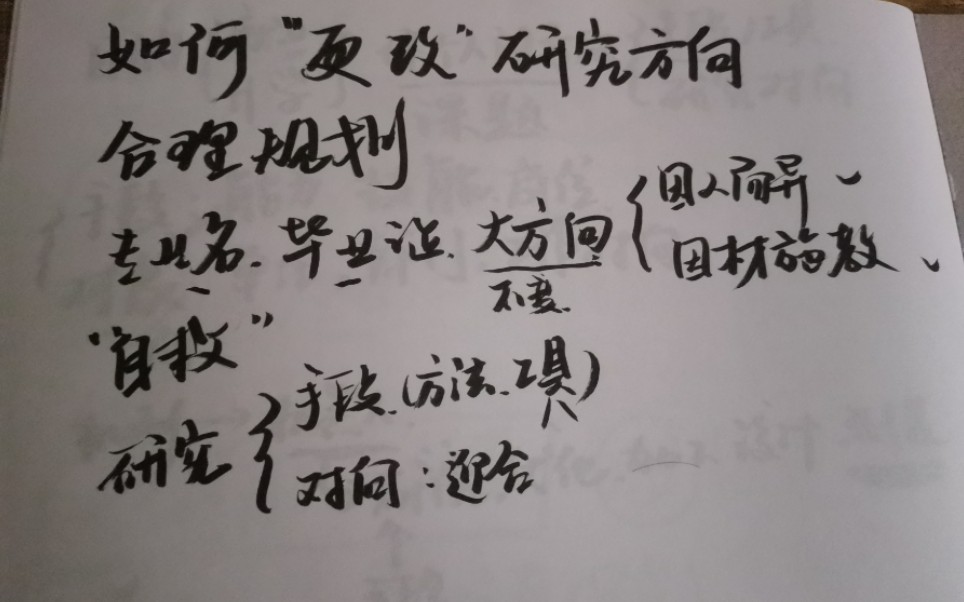 如何"更改"研究方向
合理规划
专业名. 毕业证. 大方向 { 因人而异
因材施教
不变.
"自救"
研究 { 手段.(方法.工具)
对向:迎合